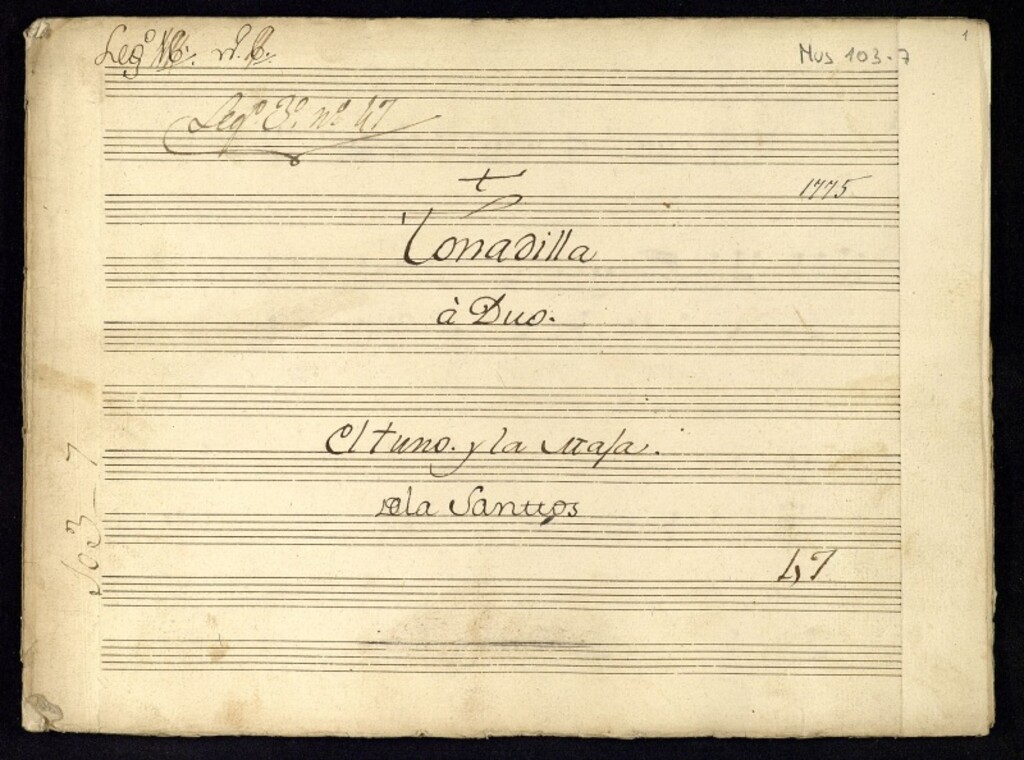 Leg.º
Mus 103-7
1
Leg.º 3.º nº 47
1775
Tonadilla
à Duo.
El tuno. y la Maja.
Dela Santtos
47
103 7